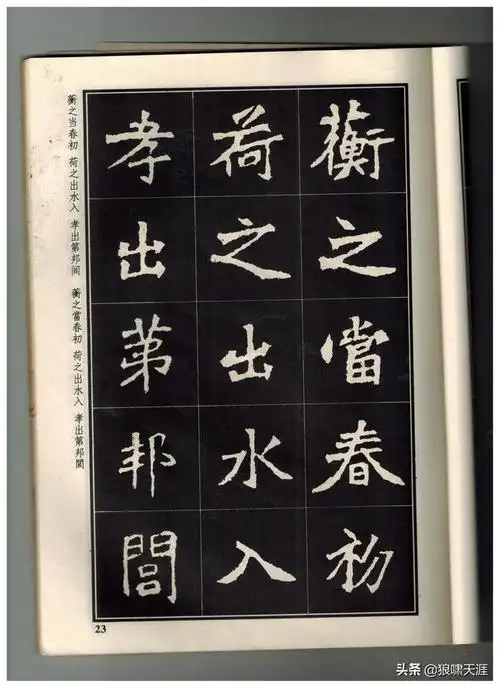 蘅之當春初
荷之出水入
孝出第邦閭
蘅之当春初 荷之出水入 孝出第邦间 蘅之當春初 荷之出水入 孝出第邦閭
23
头条 @狼啸天涯